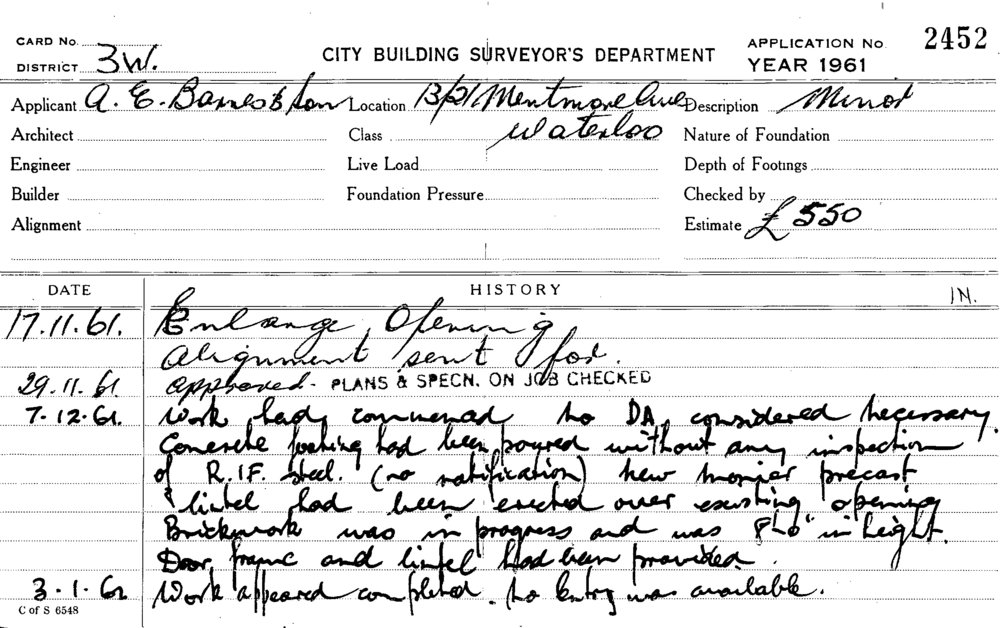 CARD No.
DISTRICT 3W.
CITY BUILDING SURVEYOR'S DEPARTMENT
APPLICATION No. 2452
YEAR 1961
Applicant A. E. Barnes & Son Location 13/21 Mentmore Ave Description Minor
Architect Class Waterloo Nature of Foundation
Engineer Live Load Depth of Footings
Builder Foundation Pressure Checked by
Alignment Estimate £550
DATE HISTORY IN.
17.11.61. Enlarge Opening
Alignment sent for.
29.11.61 approved - PLANS & SPECN. ON JOB CHECKED
7.12.61. Work had commenced no DA considered necessary.
Concrete footing had been poured without any inspection
of R.IF. steel. (no notification) New monier precast
lintel had been erected over existing opening
Brickwork was in progress and was 8'-0" in height.
Door frame and lintel had been provided.
3.1.62 Work appeared completed. No Entry was available.
C of S 6548